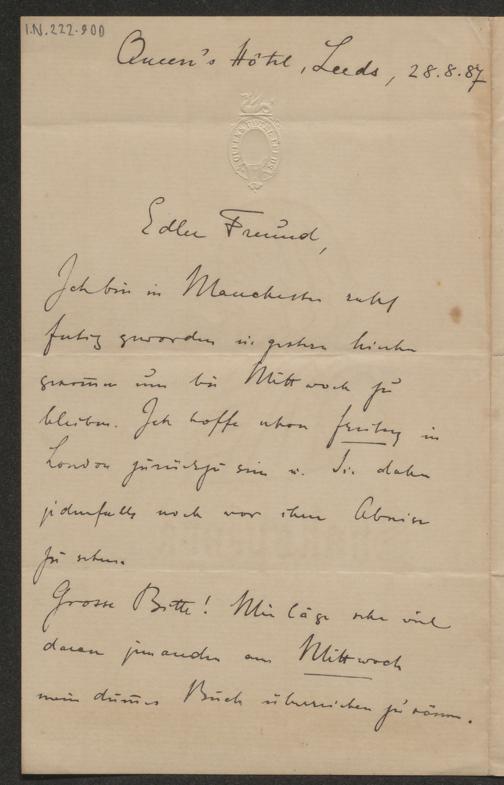 I.N. 222.900
Queen's Hôtel, Leeds, 28.8.87
Edler Freund,
Ich bin in Manchester recht
fertig geworden u. gestern hierher
gekom̄en um bis Mittwoch zu
bleiben. Ich hoffe schon freitag in
London zurückzu sein u. Sie daher
jedenfalls noch vor ihrer Abreise
zu sehen.
Grosse Bitte! Mir läge sehr viel
daran jemanden am Mittwoch
mein dum̄es Buch überreichen zu